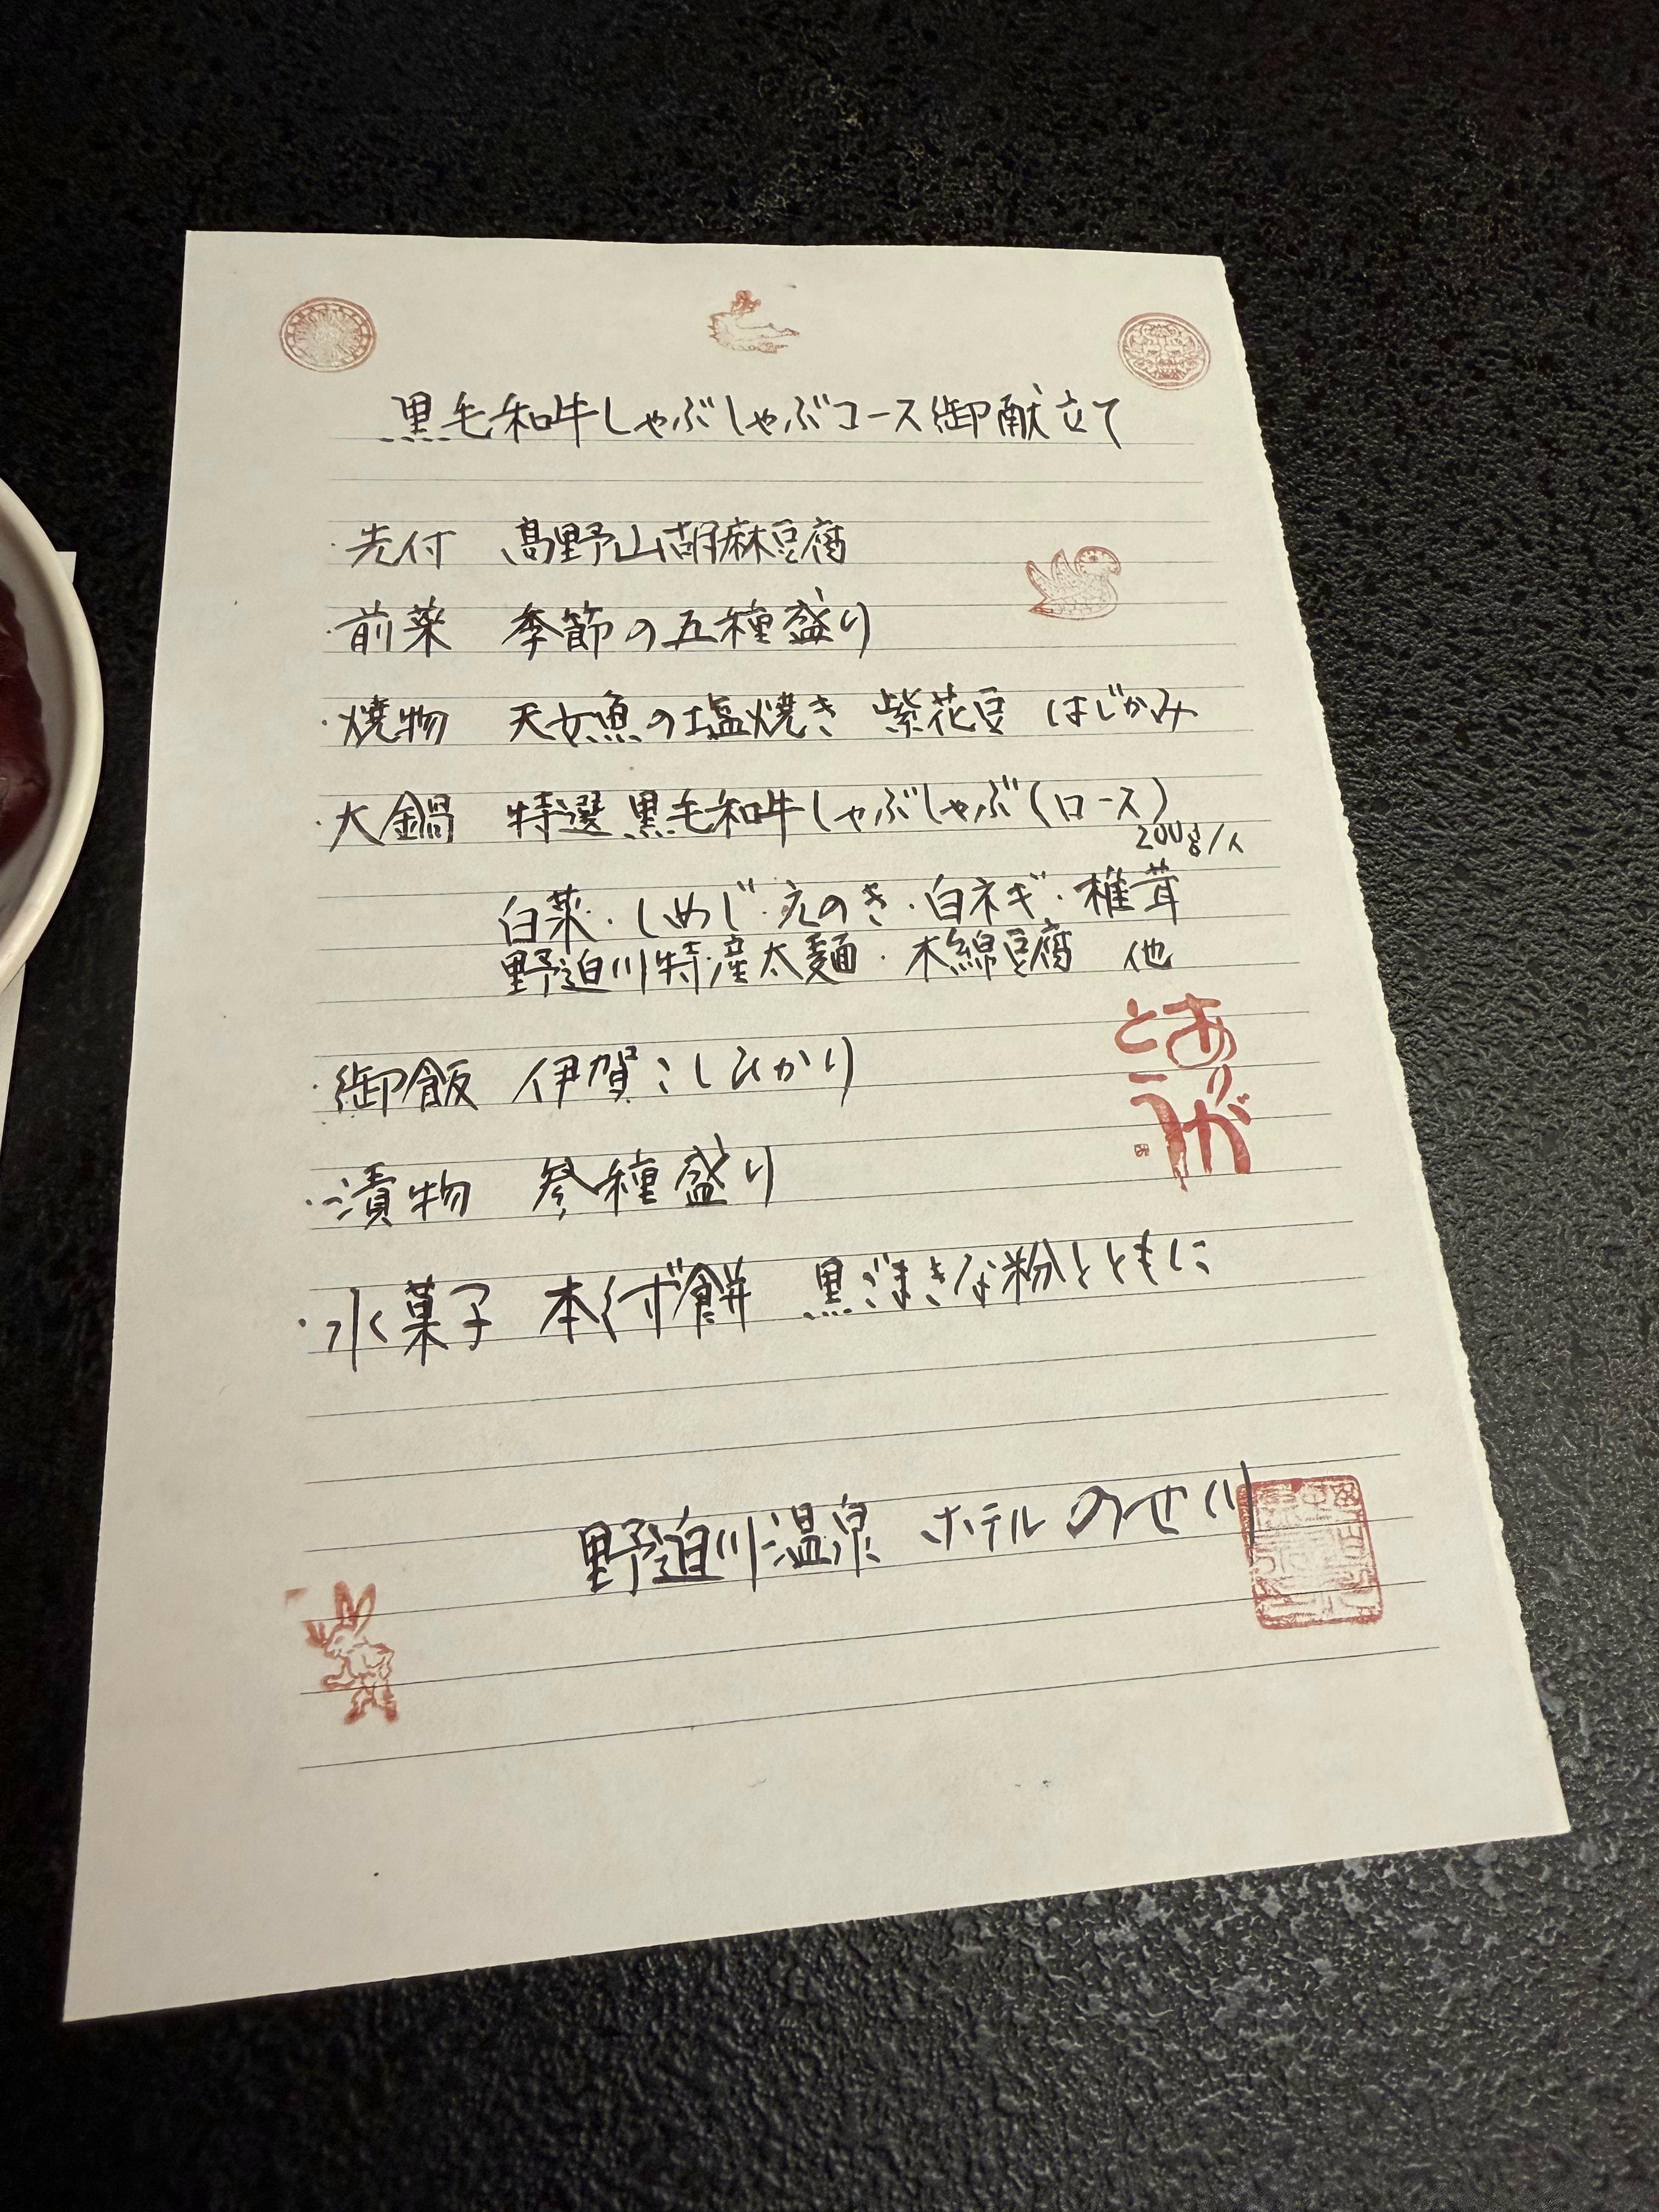 黒毛和牛しゃぶしゃぶコース御献立て
・先付 高野山胡麻豆腐
・前菜 季節の五種盛り
・焼物 天女魚の塩焼き 紫花豆 はじかみ
・大鍋 特選黒毛和牛しゃぶしゃぶ(ロース)
200g/人
白菜・しめじ・えのき・白ネギ・椎茸
野迫川特産太麺・木綿豆腐 他
・御飯 伊賀こしひかり
・漬物 参種盛り
・水菓子 本くず餅 黒ごまきな粉とともに
ありが
とう
野迫川温泉 ホテルのせ川